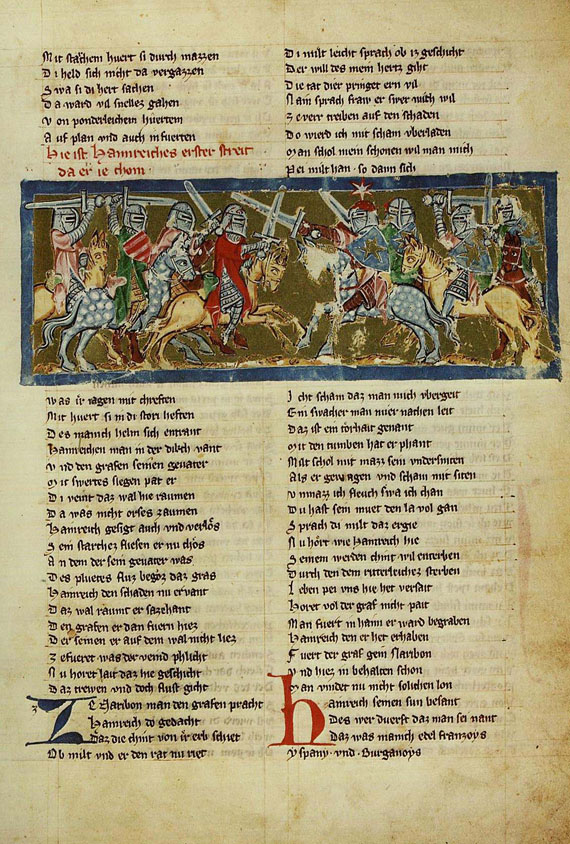 Mit starchem huert si durch mazzen
Di held sich nicht da vergazzen
Swa si di hert sachen
Da ward vil snelles gahen
Von ponderleichem huertem
Auf plan vnd auch in fuerten
Hie ist Hamreiches erster streit
da er ie chom
Was ir iagen mit chreften
Mit huert si in di storí heften
Des manich helm sich entrant
Hamreichen man in der dikch vant
Vnd den grafen seinen geuater
Mit swertes slegen pat er
Di veint daz wal hie raumen
Da was nicht orses zaumen
Hamreich gesigt auch vnd verlos
Sein starchez fliesen er nu chos
An dem der sein geuater was
Des pluetes fluz begoz daz gras
Hamreich den schaden nu ervant
Daz wal raumt er sazehant
Den grafen er dan fuern hiez
Der seinen er auf dem wal nicht liez
Ze fueret was der veind phlicht
Nu horet lait daz hie geschicht
Daz trewen vnd doch slust gicht
Ze Naribon man den grafen pracht
Hamreich do gedacht
Daz die chint von ir erb schiet
Ob milt vnd er den rat nu riet
Di milt leicht sprach ob iz geschicht
Der will des mein hertz giht
Die tat dier pringet ern vil
Nain sprach fraw er swer mich wil
Ze verr treiben auf den schaden
Do wierd ich mit scham vberladen
Man schol mein schonen wil man mich
Pei milt han · so dann sich
Icht scham daz man mich vbergeit
Ein swacher man mier nachen leit
Daz ist ein torhait genant
Mit den tumben hat er phant
Milt schol mit mazz sein vndersniten
Als er gewegen vnd scham mit siten
Vnmazz ich fleuch swa ich chan
Du hast sein muet den la vol gan
Sprach di milt daz ergie
Nu hört wie Hamreich hie
Seinem werden chint wil enterben
Durch den dem ritterleichez sterben
Leben pei vns hie het versait
Horet vol der graf nicht pait
Man fuert in haim er ward begraben
Hamreich den er het erhaben
Fuert der graf gein Naribon
Vnd hiez in behalten schon
Man vindet nu nicht solichen lon
Hamreich seinen sun besant
Des wer duerft daz man sei nant
Daz was manich edel franzoys
Yspany · vnd · Burganoys